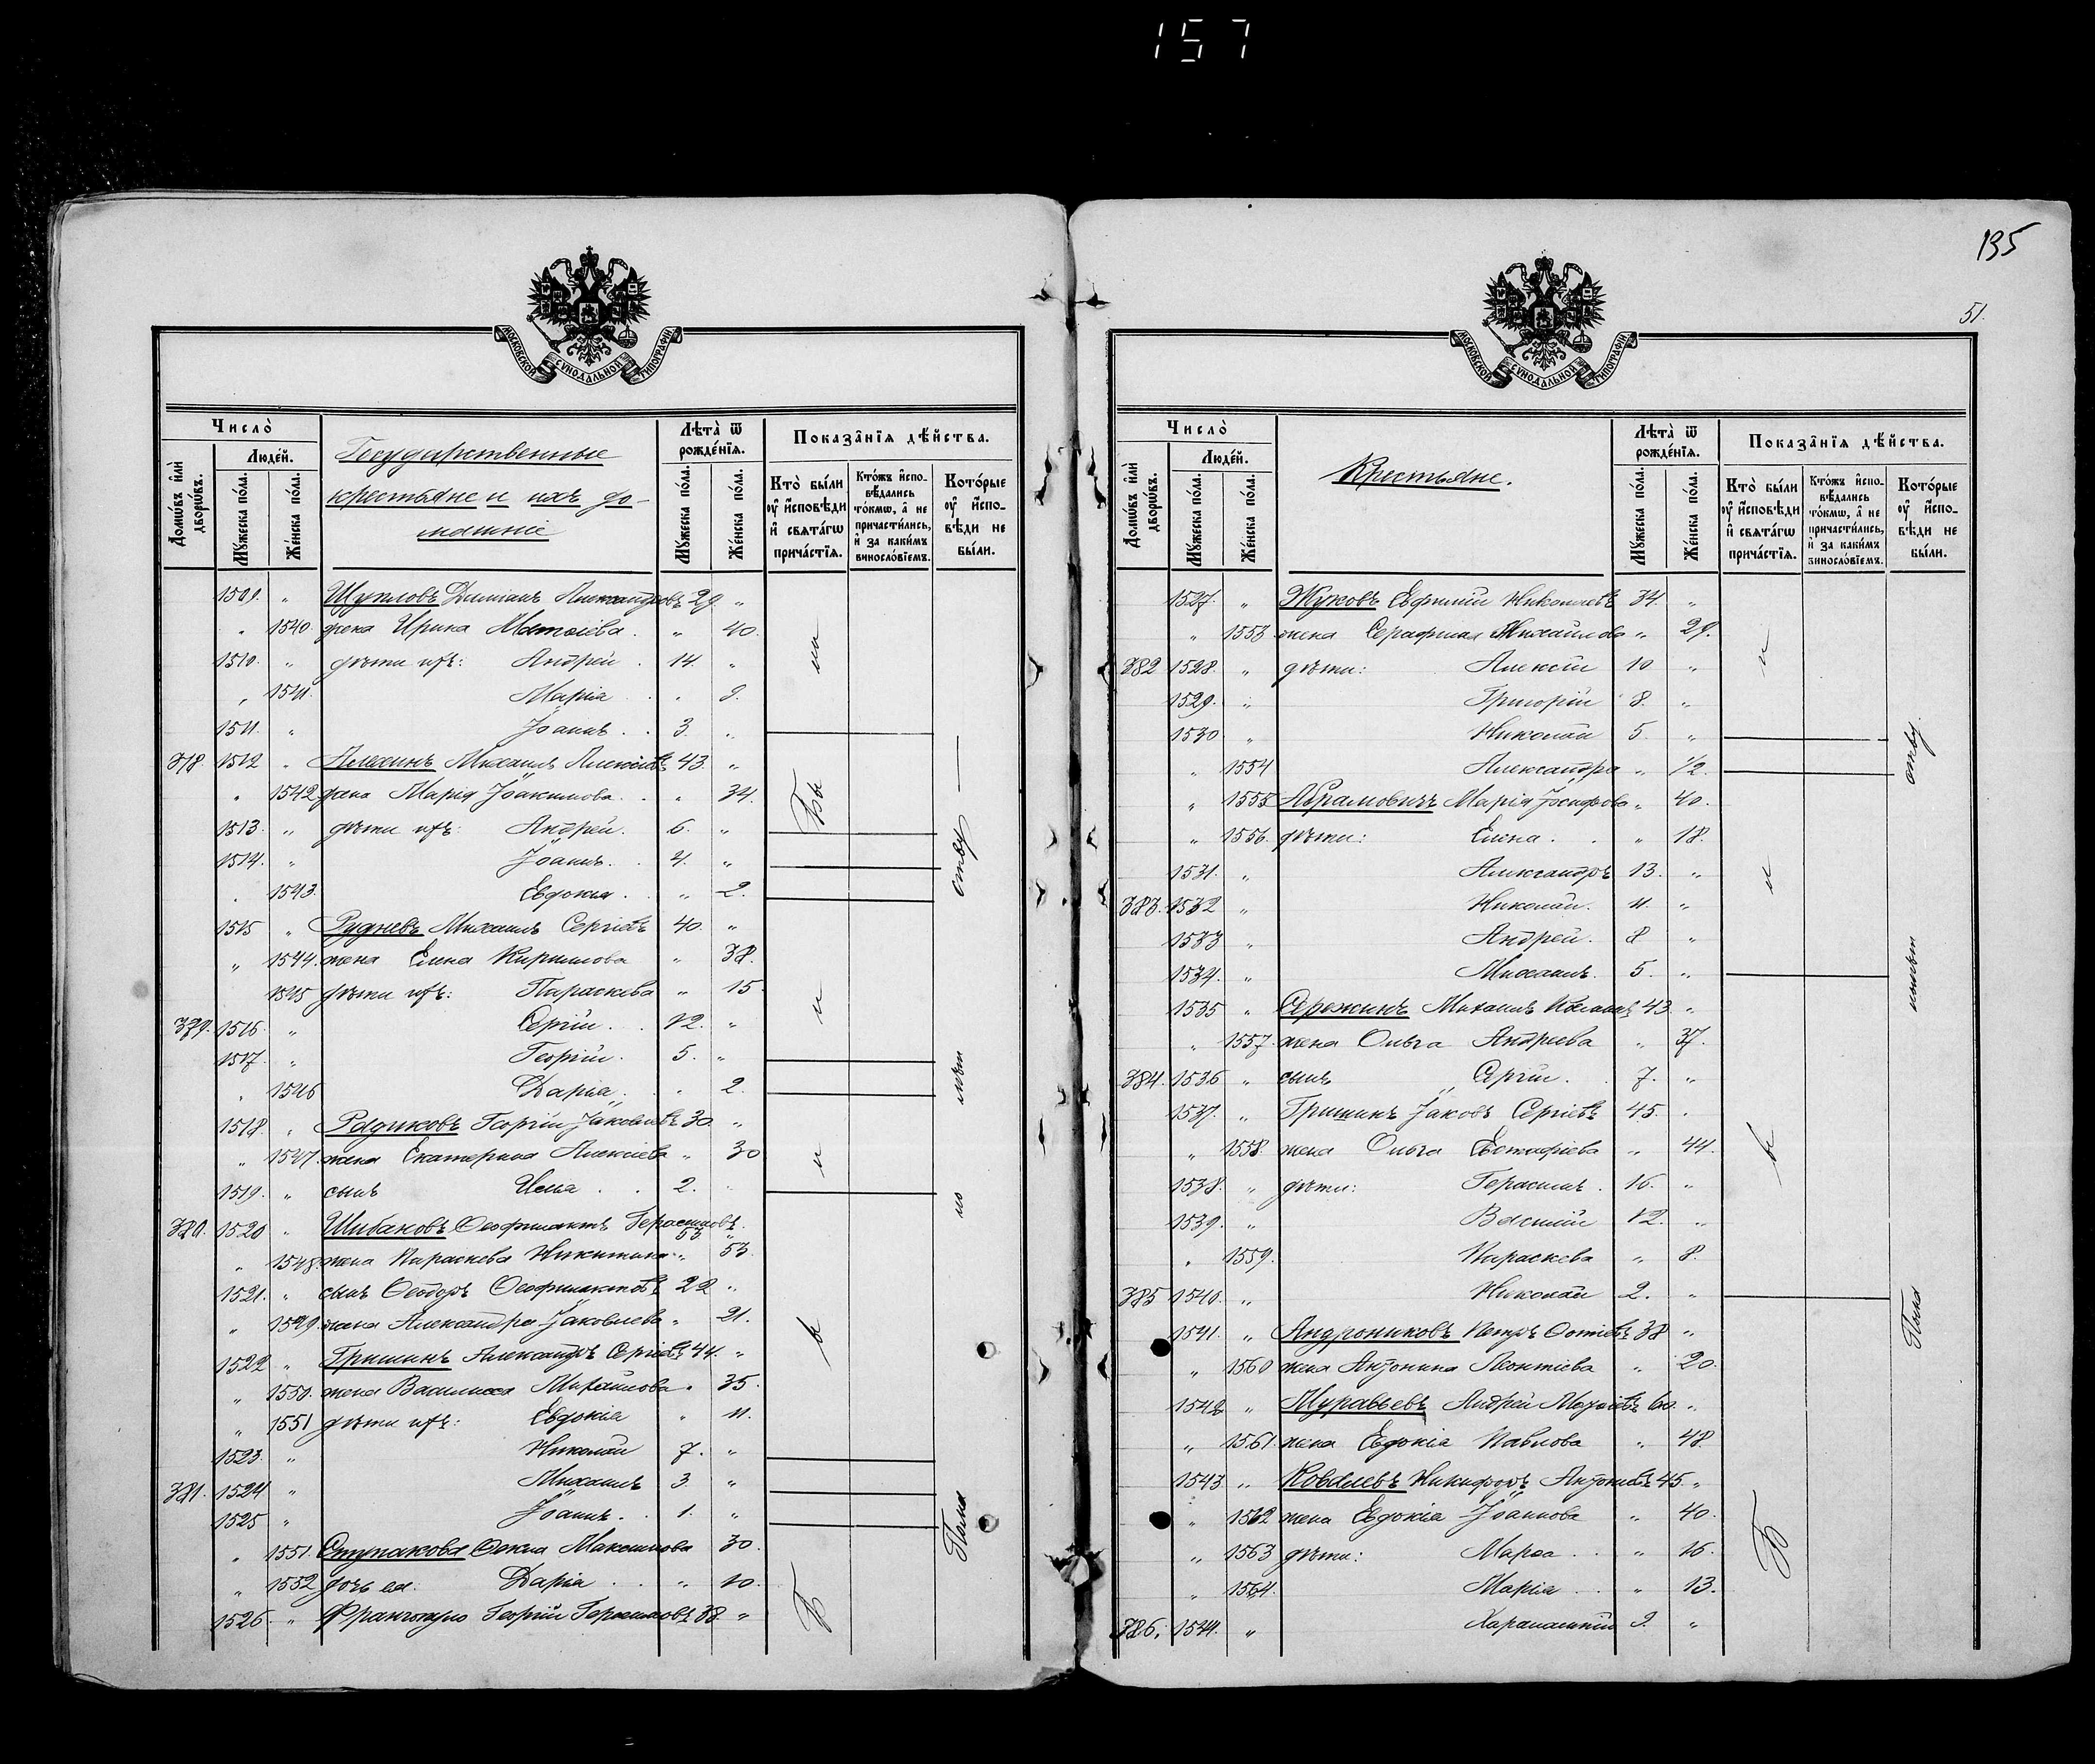 157
МОСКОВСКОЙ СѴНОДАЛЬНОЙ ТИПОГРАФІИ
Число̀
Людéй.
Домѡ́въ и҆лѝ дворѡ́въ.
Мꙋ́жеска по́ла.
Же́нска по́ла.
Государственные
крестьяне и ихъ до-
машніе
Лѣта̀ ѿ рожде́нїѧ.
Мꙋ́жеска по́ла.
Же́нска по́ла.
Показа̑нїѧ дѣ́йства.
Кто̀ бы́ли ᲂу҆ и҆сповѣди и҆ свѧта́гѡ прича́стїѧ.
Кто́жъ и҆спо-вѣ́дались то́кмѡ, а҆ не причасти́лись, и҆ за каки́мъ винослóвїемъ.
Кото́рые ᲂу҆ и҆спо-вѣди не бы́ли.
1509. " Щупловъ Даміанъ Александровъ 29. "
" 1540. жена Ирина Матѳіева . " 40.
1510. " дѣти ихъ: Андрей . 14. "
" 1541. Марія . . " 9.
1511. " Іоаннъ . . 3. "
378. 1512 " Алехинъ Михаилъ Алексіевъ 43. "
" 1542. жена Марія Іоакимова . . " 34.
1513. " дѣти ихъ: Андрей. 6. "
1514. " Іоаннъ. . 4. "
. 1543. Евдокія . . " 2.
1515 " Рудневъ Михаилъ Сергіевъ 40. "
" 1544. жена Елена Кириллова " 38.
1545 дѣти ихъ: Параскева " 15.
379. 1516. " Сергій . . 12. "
1517. " Георгій . 5. "
" 1546 Дарія . . 2.
1518. " Радиковъ Георгій Іаковлевъ 30. "
" 1547. жена Екатерина Алексіева " 30
1519. " сынъ Илья . . 2. "
380. 1520 " Шибаковъ Ѳеофилактъ Герасимовъ. 53. "
" 1548. жена Параскева Никитина " 53.
1521. " сынъ Ѳеодоръ Ѳеофилактовъ 22 "
" 1549. жена Александра Іаковлева " 21.
1522 " Гришинъ Александръ Сергіевъ 44. "
" 1550. жена Василисса Михайлова . 35.
" 1551 дѣти ихъ: Евдокія " 11.
1523. " Николай 7. "
381. 1524 " Михаилъ 3. "
1525 " Іоаннъ . . 1. "
" 1551. Ступакова Ѳекла Максимова 30.
" 1552 дочь ея. Дарія . . " 10.
1526. " Георгій Герасимовъ 38. "
Бы
отву
лѣт
135
51.
МОСКОВСКОЙ СѴНОДАЛЬНОЙ ТИПОГРАФІИ
Число̀
Людéй.
Домѡ́въ и҆лѝ дворѡ́въ.
Мꙋ́жеска по́ла.
Же́нска по́ла.
Крестьяне.
Лѣта̀ ѿ рожде́нїѧ.
Мꙋ́жеска по́ла.
Же́нска по́ла.
Показа̑нїѧ дѣ́йства.
Кто̀ бы́ли ᲂу҆ и҆сповѣди и҆ свѧта́гѡ прича́стїѧ.
Кто́жъ и҆спо-вѣ́дались то́кмѡ, а҆ не причасти́лись, и҆ за каки́мъ винослóвїемъ.
Кото́рые ᲂу҆ и҆спо-вѣди не бы́ли.
1527. " Жуковъ Евфимій Николаевъ 34. "
" 1553. жена Серафима Михайлова " 29.
382 1528. " дѣти: Алексій 10 "
1529. " Григорій 8. "
1530 " Николай 5. "
" 1554 Александра " 1/2.
" 1555 Абрамовичъ Марія Іосифова " 40.
" 1556. дѣти: Елена . . " 18.
1531. " Александръ 13. "
383. 1532 " Николай. 11. "
1533 " Андрей. 8 "
1534. " Михаилъ. 5. "
1535 " Сережинъ Михаилъ 43. "
" 1557. жена Ольга Андреева " 37.
384. 1536 " сынъ Сергій. . 7. "
1537. " Гришинъ Іаковъ Сергіевъ 45. .
" 1558. жена Ольга Евстафіева " 44.
1538. " дѣти: Герасимъ . 16. "
1539. " Василій 12. "
" 1559. Параскева " 8.
385 1540. " Николай 2. "
1541. " Андрониковъ Петръ Ѳотіевъ 38 "
" 1560 жена Антонина Леонтіева " 20.
1542 " Муравьевъ Андрей Моѵсіевъ 60. "
" 1561. жена Евдокія Павлова " 48.
1543 " Ковалевъ Никифоръ Антоніевъ 45. "
" 1562 жена Евдокія Іоаннова " 40.
" 1563 дѣти: Марѳа . . " 16.
" 1564. Марія . . " 13.
386. 1544. " Харалампій 9. "
отву